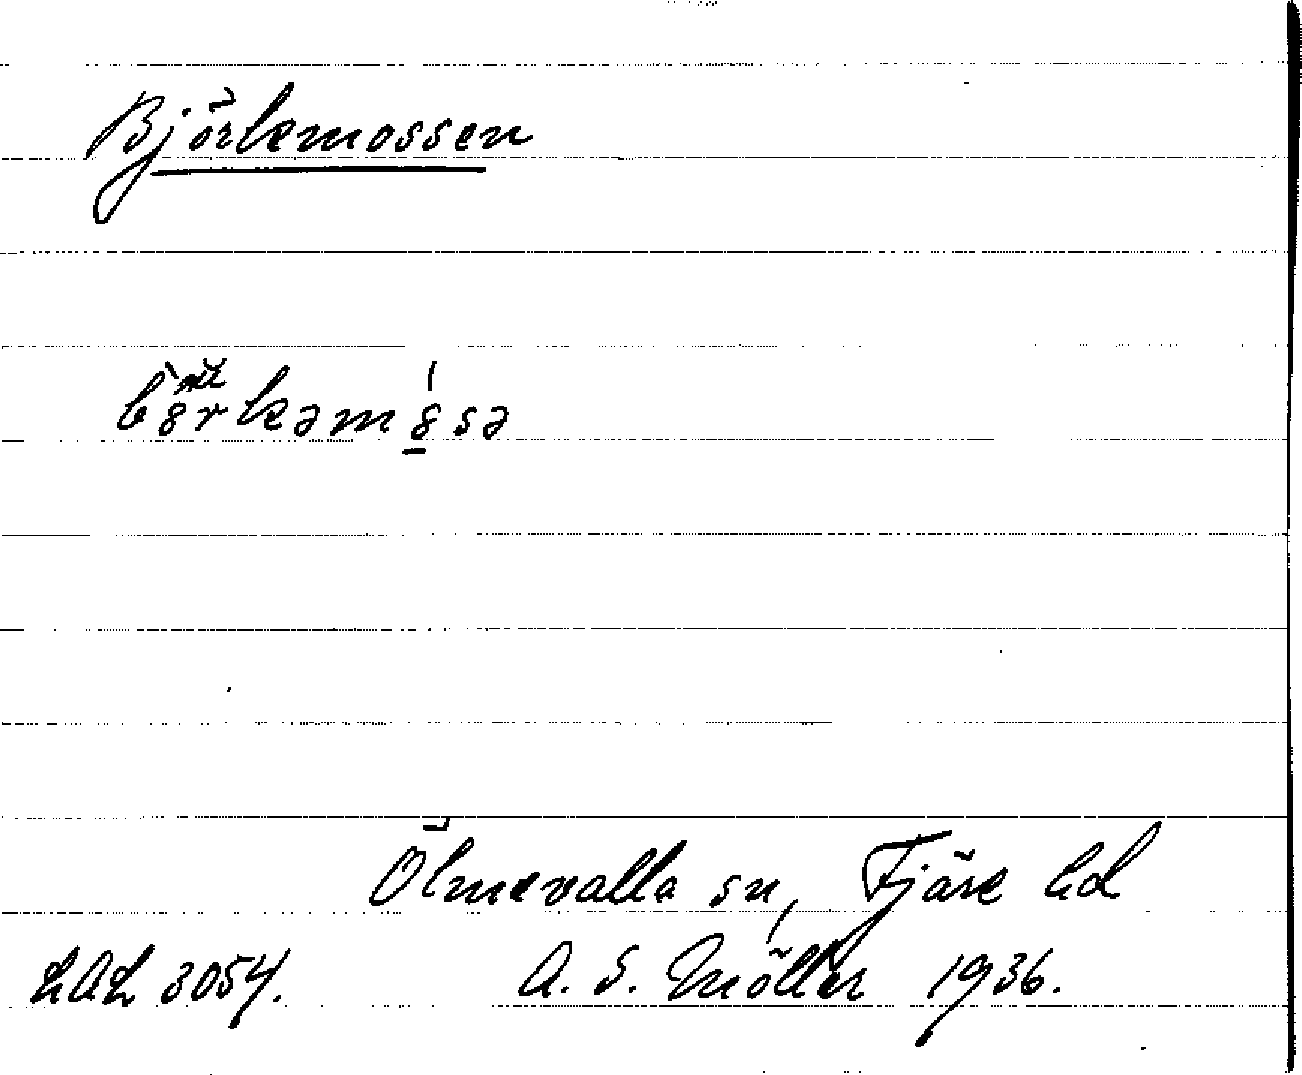 Björkemossen
börkəmösə
Ölmevalla sn, Fjäre hd
LAL 3054. A. S. Möller 1936.